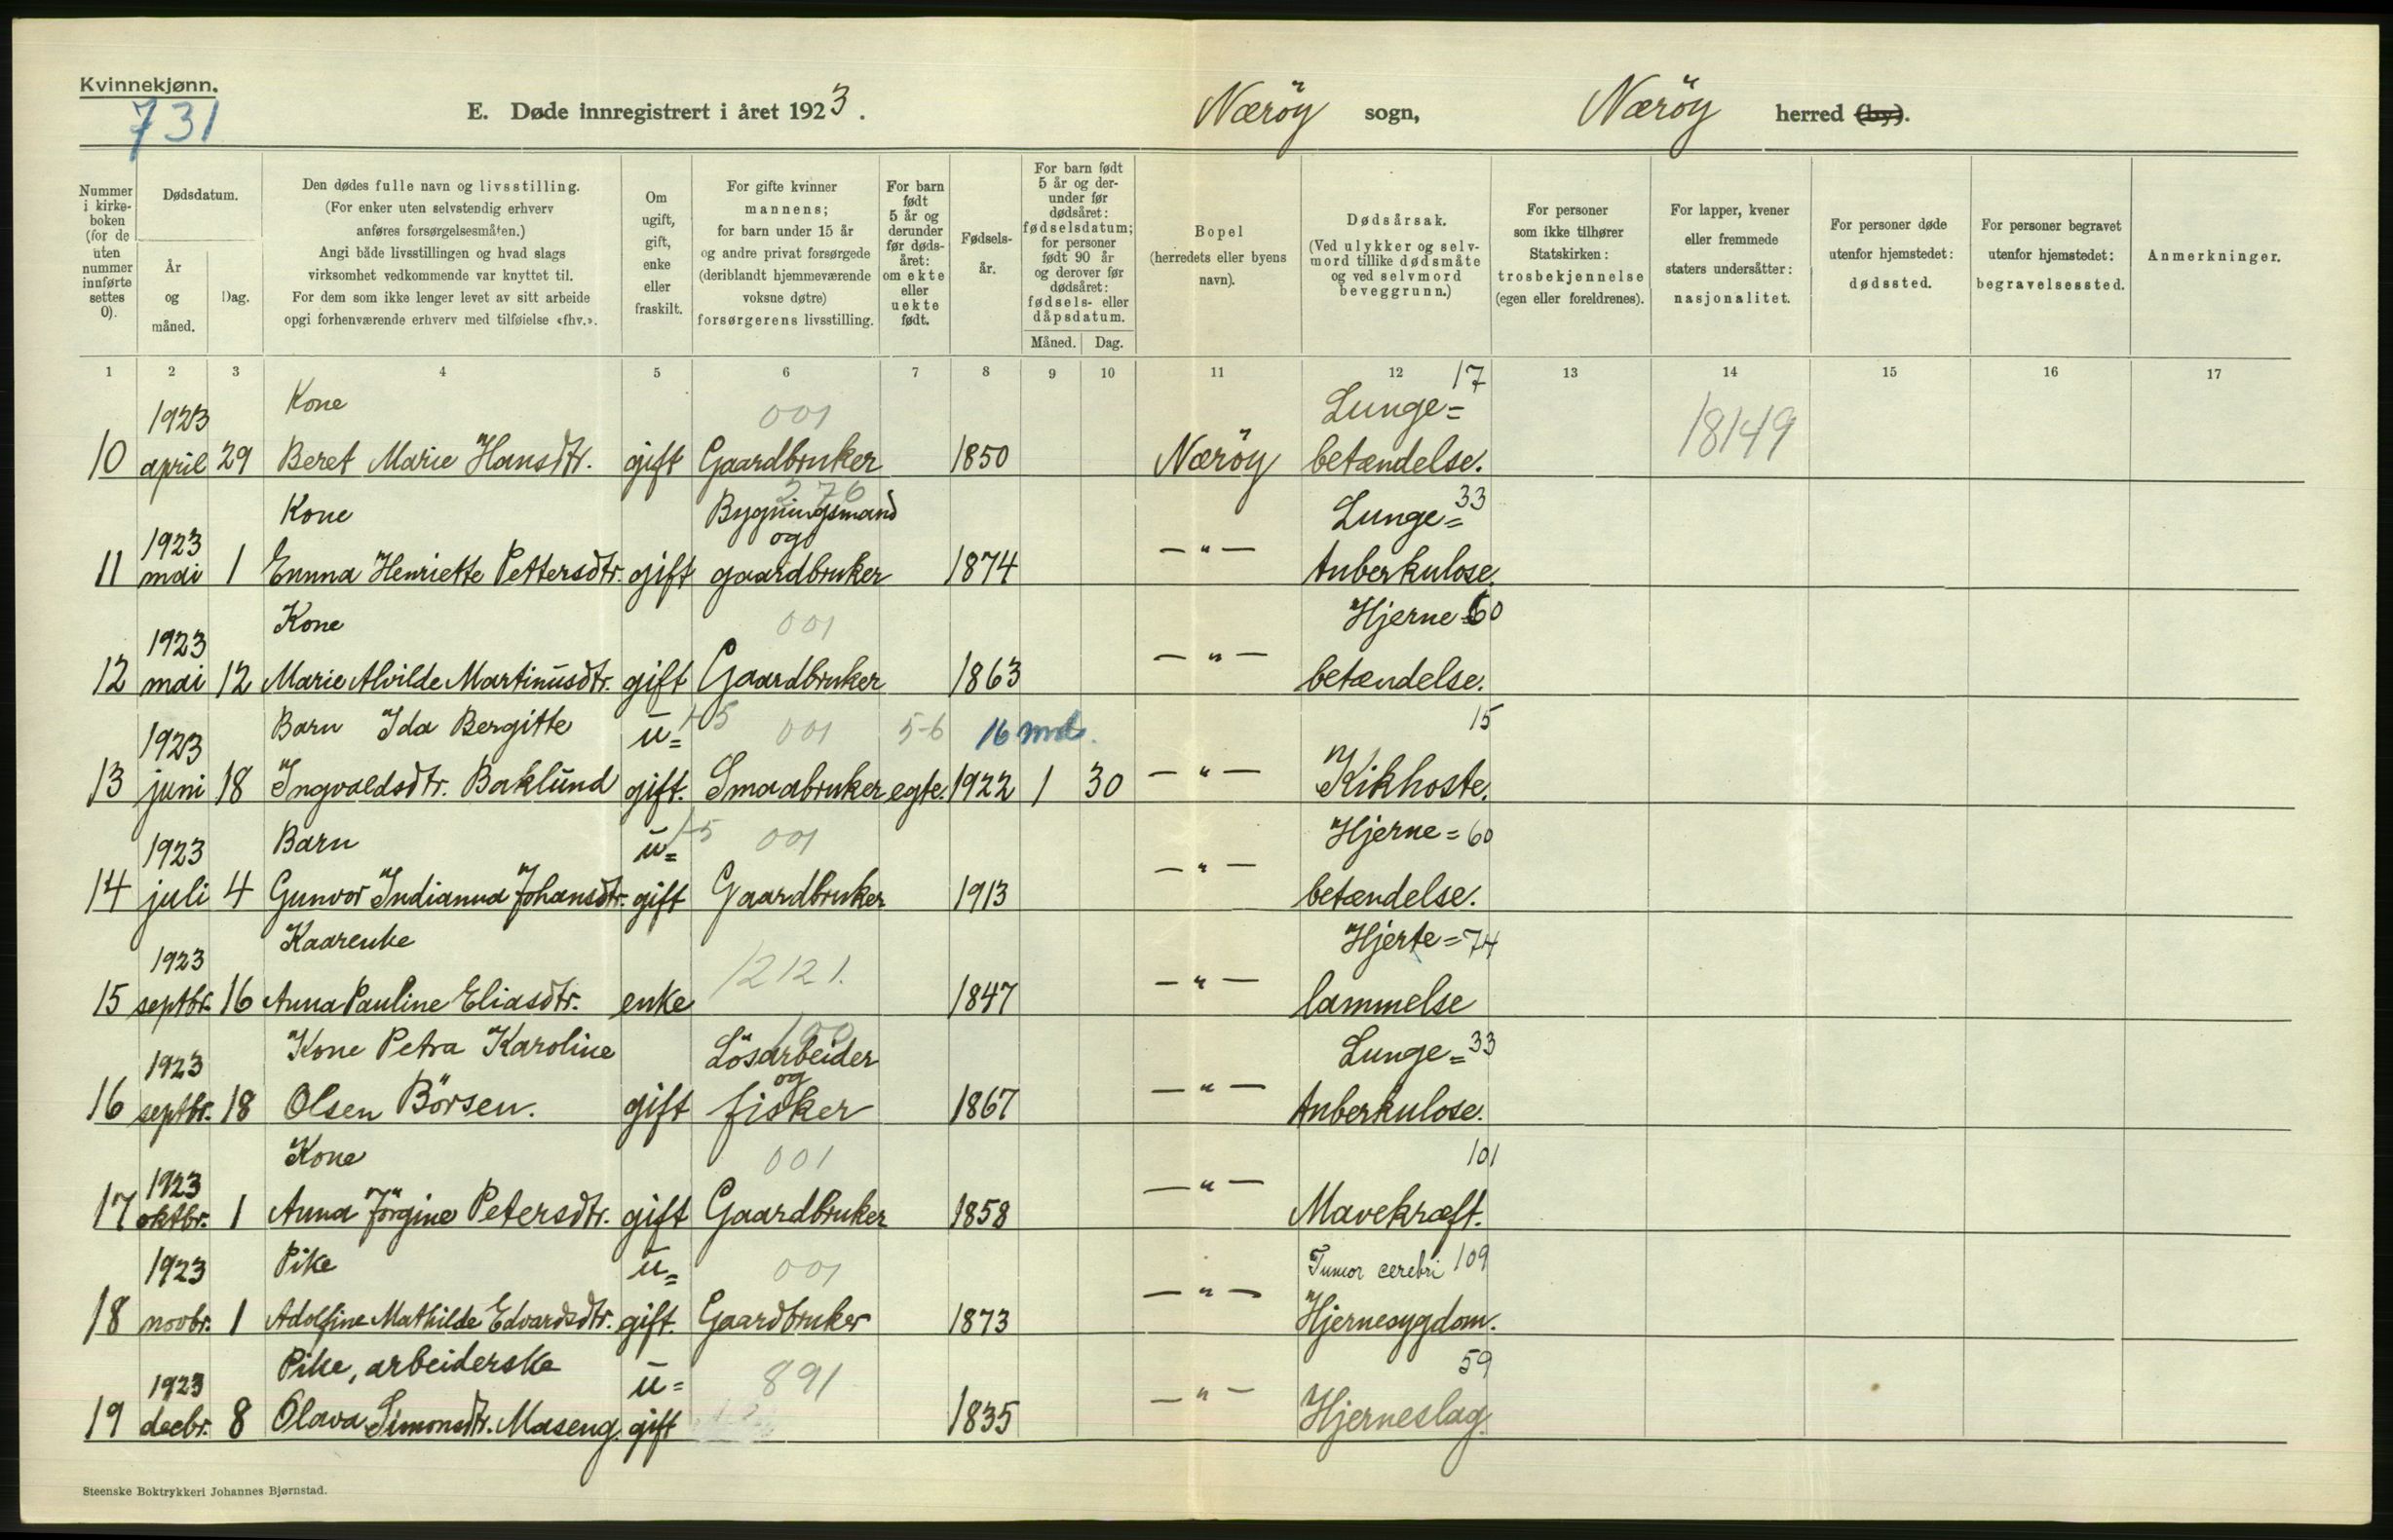 Kvinnekjønn.
731
E. Døde innregistrert i året 1923.
Nærøy sogn, Nærøy herred (by).
Nummer i kirke- boken (for de uten nummer innførte settes 0).
Dødsdatum.
År og måned.
Dag.
Den dødes fulle navn og livsstilling.
(For enker uten selvstendig erhverv
anføres forsørgelsesmåten.)
Angi både livsstillingen og hvad slags
virksomhet vedkommende var knyttet til.
For dem som ikke lenger levet av sitt arbeide
opgi forhenværende erhverv med tilføielse «fhv.».
Om ugift, gift, enke eller fraskilt.
For gifte kvinner
mannens;
for barn under 15 år
og andre privat forsørgede
(deriblandt hjemmeværende
voksne døtre)
forsørgerens livsstilling.
For barn født 5 år og derunder før døds- året: om ekte eller uekte født.
Fødsels- år.
For barn født 5 år og der- under før dødsåret: fødselsdatum; for personer født 90 år og derover før dødsåret: fødsels- eller dåpsdatum.
Måned. Dag.
Bopel
(herredets eller byens
navn).
Dødsårsak.
(Ved ulykker og selv-
mord tillike dødsmåte
og ved selvmord
beveggrunn.)
For personer
som ikke tilhører
Statskirken:
trosbekjennelse
(egen eller foreldrenes).
For lapper, kvener
eller fremmede
staters undersåtter:
nasjonalitet.
For personer døde
utenfor hjemstedet:
dødssted.
For personer begravet
utenfor hjemstedet:
begravelsessted.
Anmerkninger.
1 2 3 4 5 6 7 8 9 10 11 12 13 14 15 16 17
1923 Kone 001 Lunge= 17
10 april 29 Beret Marie Hansdtr. gift Gaardbruker 1850 Nærøy betændelse. 18149
376
1923 Kone Bygningsmand og Lunge= 33
11 mai 1 Emma Henriette Pettersdtr. gift gaardbruker 1874 — " — tuberkulose.
1923 Kone 001 Hjerne= 60
12 mai 12 Marie Alvilde Martinusdtr. gift Gaardbruker 1863 — " — betændelse.
1923 Barn Ida Bergitte u= 1-5 001 5-6 16 md. 15
13 juni 18 Ingvaldsdtr. Baklund gift. Smaabruker egte. 1922 1 30 — " — Kikhoste.
1923 Barn u= 1-5 001 Hjerne= 60
14 juli 4 Gunvor Indianna Johansdtr. gift Gaardbruker 1913 — " — betændelse.
1923 Kaarenke 1212 1. Hjerte= 74
15 septbr. 16 Anna Pauline Eliasdtr. enke 1847 — " — lammelse
1923 Kone Petra Karoline Lösarbeider og Lunge= 33
16 septbr. 18 Olsen Börsen. gift fisker 1867 — " — tuberkulose.
1923 Kone 001 101
17 oktbr. 1 Anna Jörgine Petersdtr. gift Gaardbruker 1858 — " — Mavekræft.
1923 Pike u= 001 Tumor cerebri 109
18 novbr. 1 Adolfine Mathilde Edvardsdtr. gift. Gaardbruker 1873 — " — Hjernesygdom.
1923 Pike, arbeiderske u= 891 59
19 decbr. 8 Olava Simonsdtr. Maseng. gift 1835 — " — Hjerneslag.
Steenske Boktrykkeri Johannes Bjørnstad.